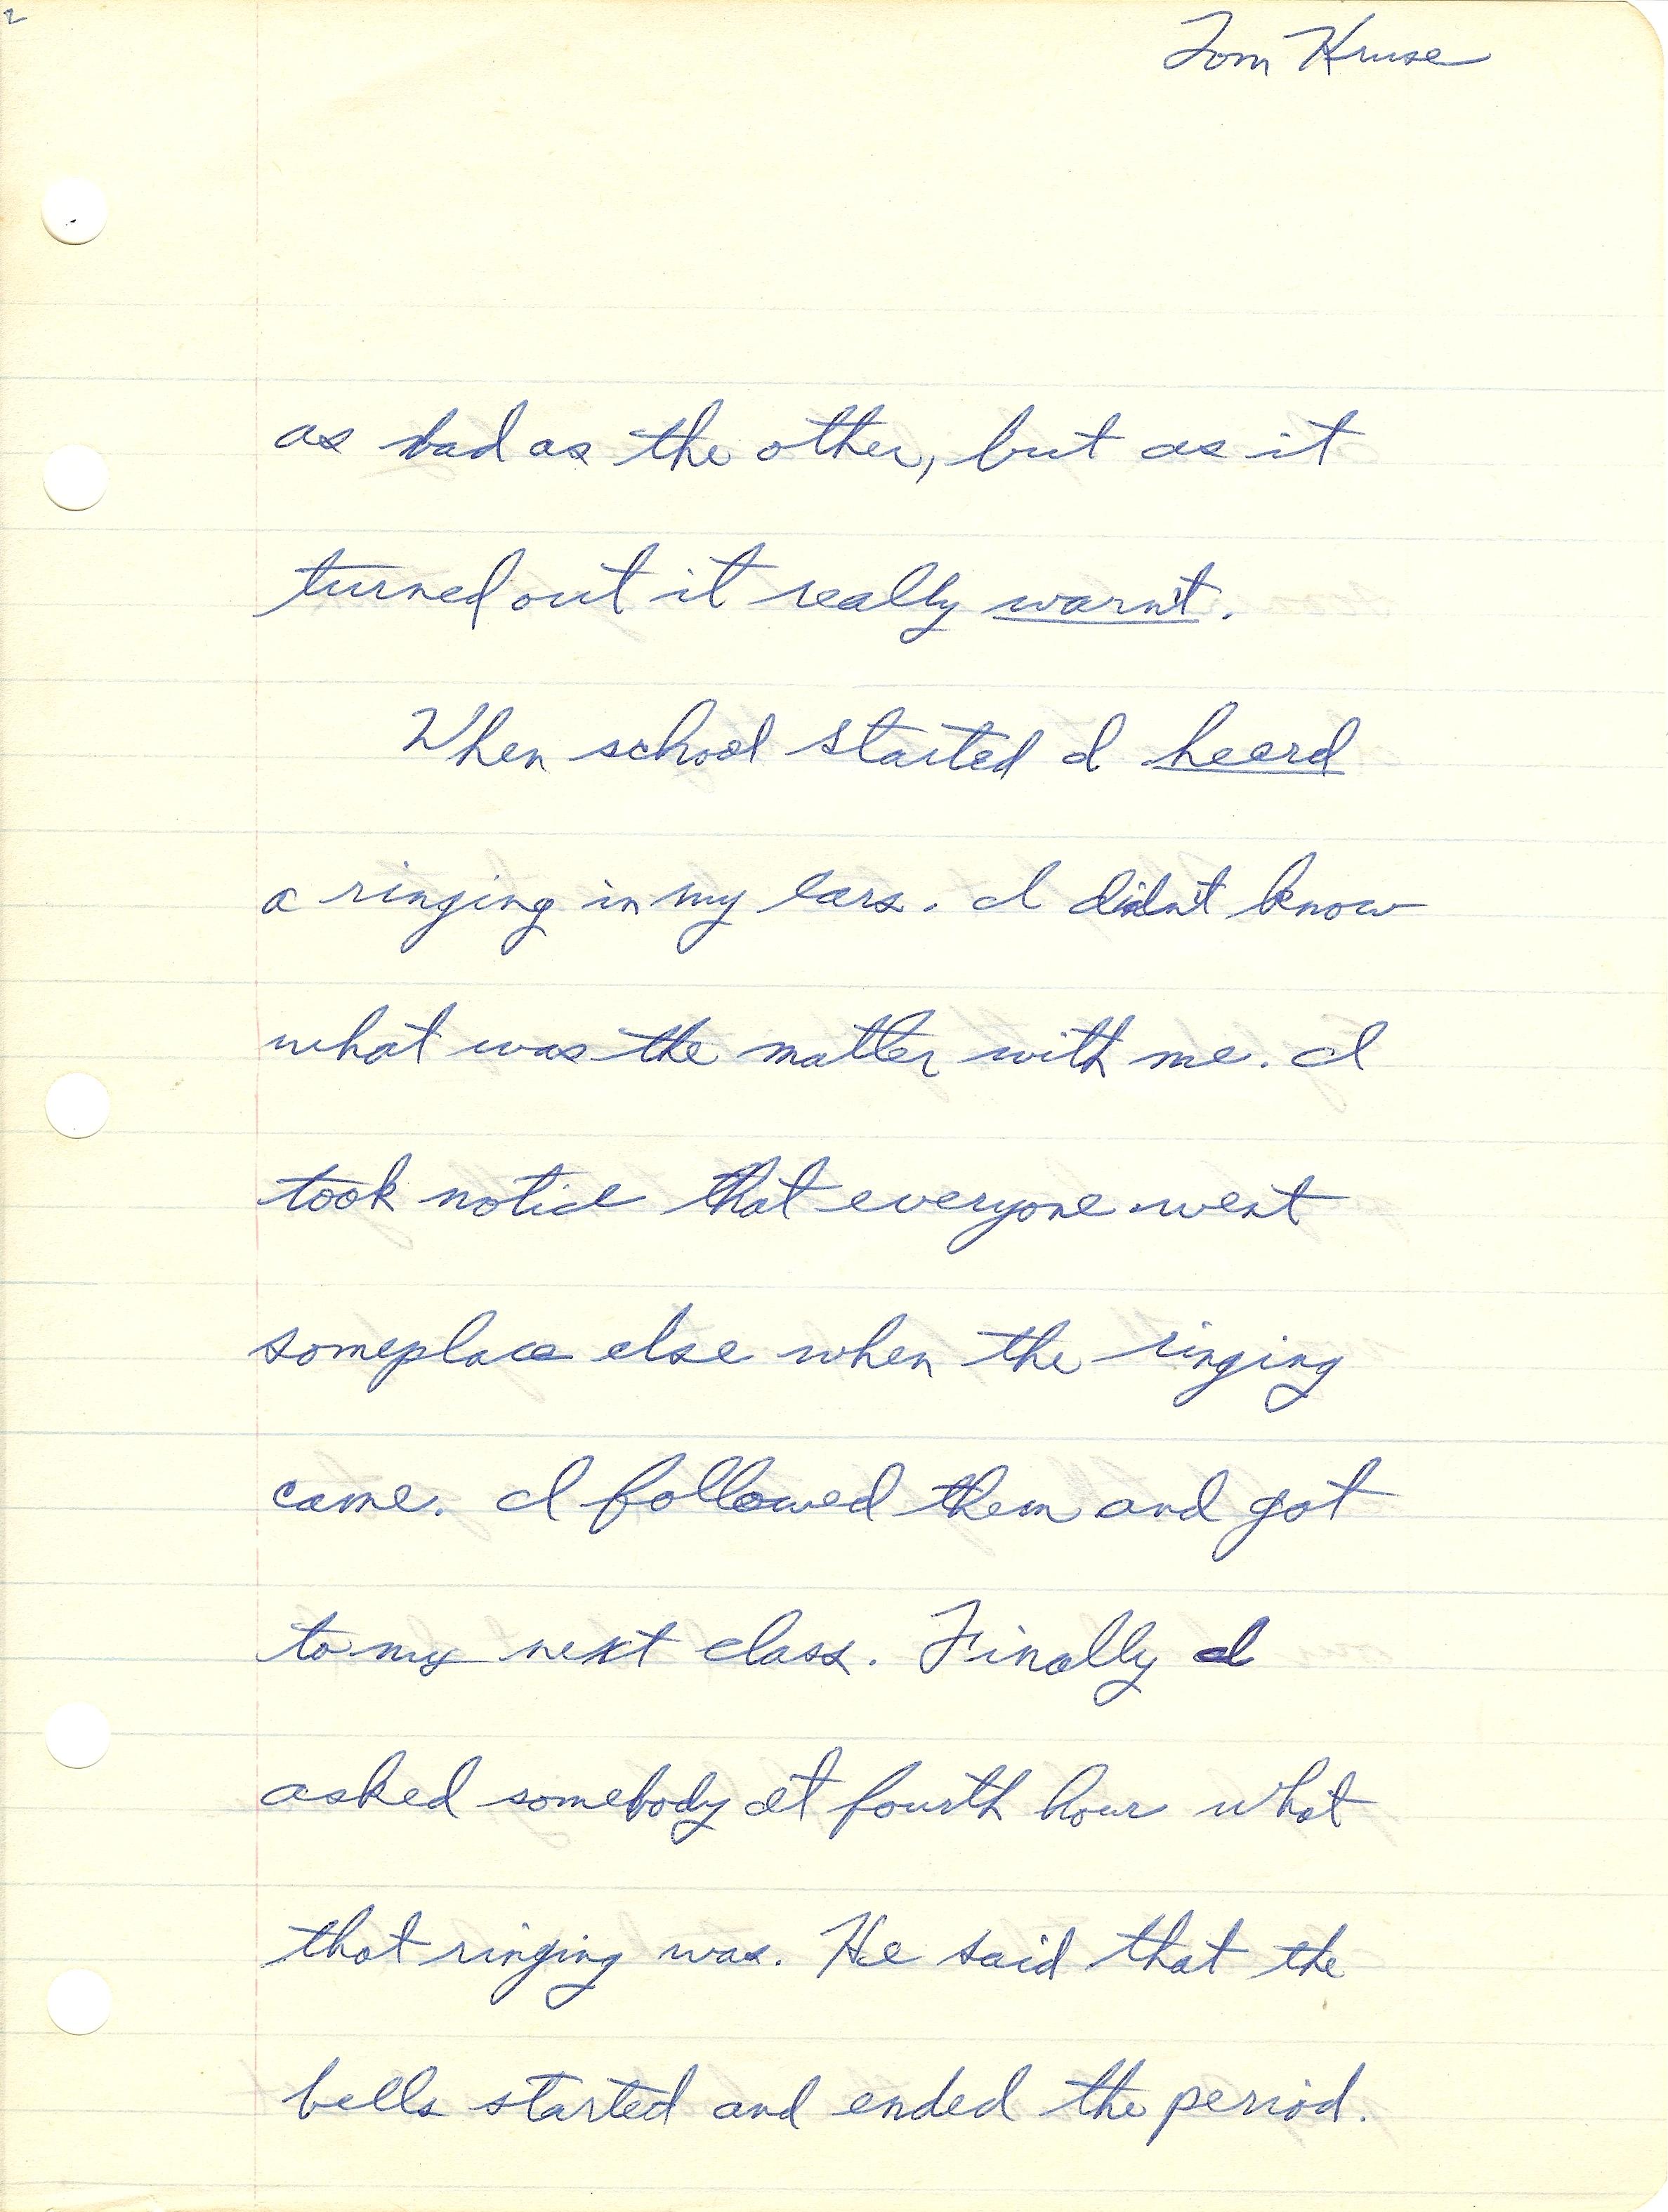 2
Tom Kruse
as bad as the other, but as it
turned out it really warn't.
When school started I heard
a ringing in my ears. I didn't know
what was the matter with me. I
took notice that everyone went
someplace else when the ringing
came. I followed them and got
to my next class. Finally I
asked somebody at fourth hour what
that ringing was. He said that the
bells started and ended the period.